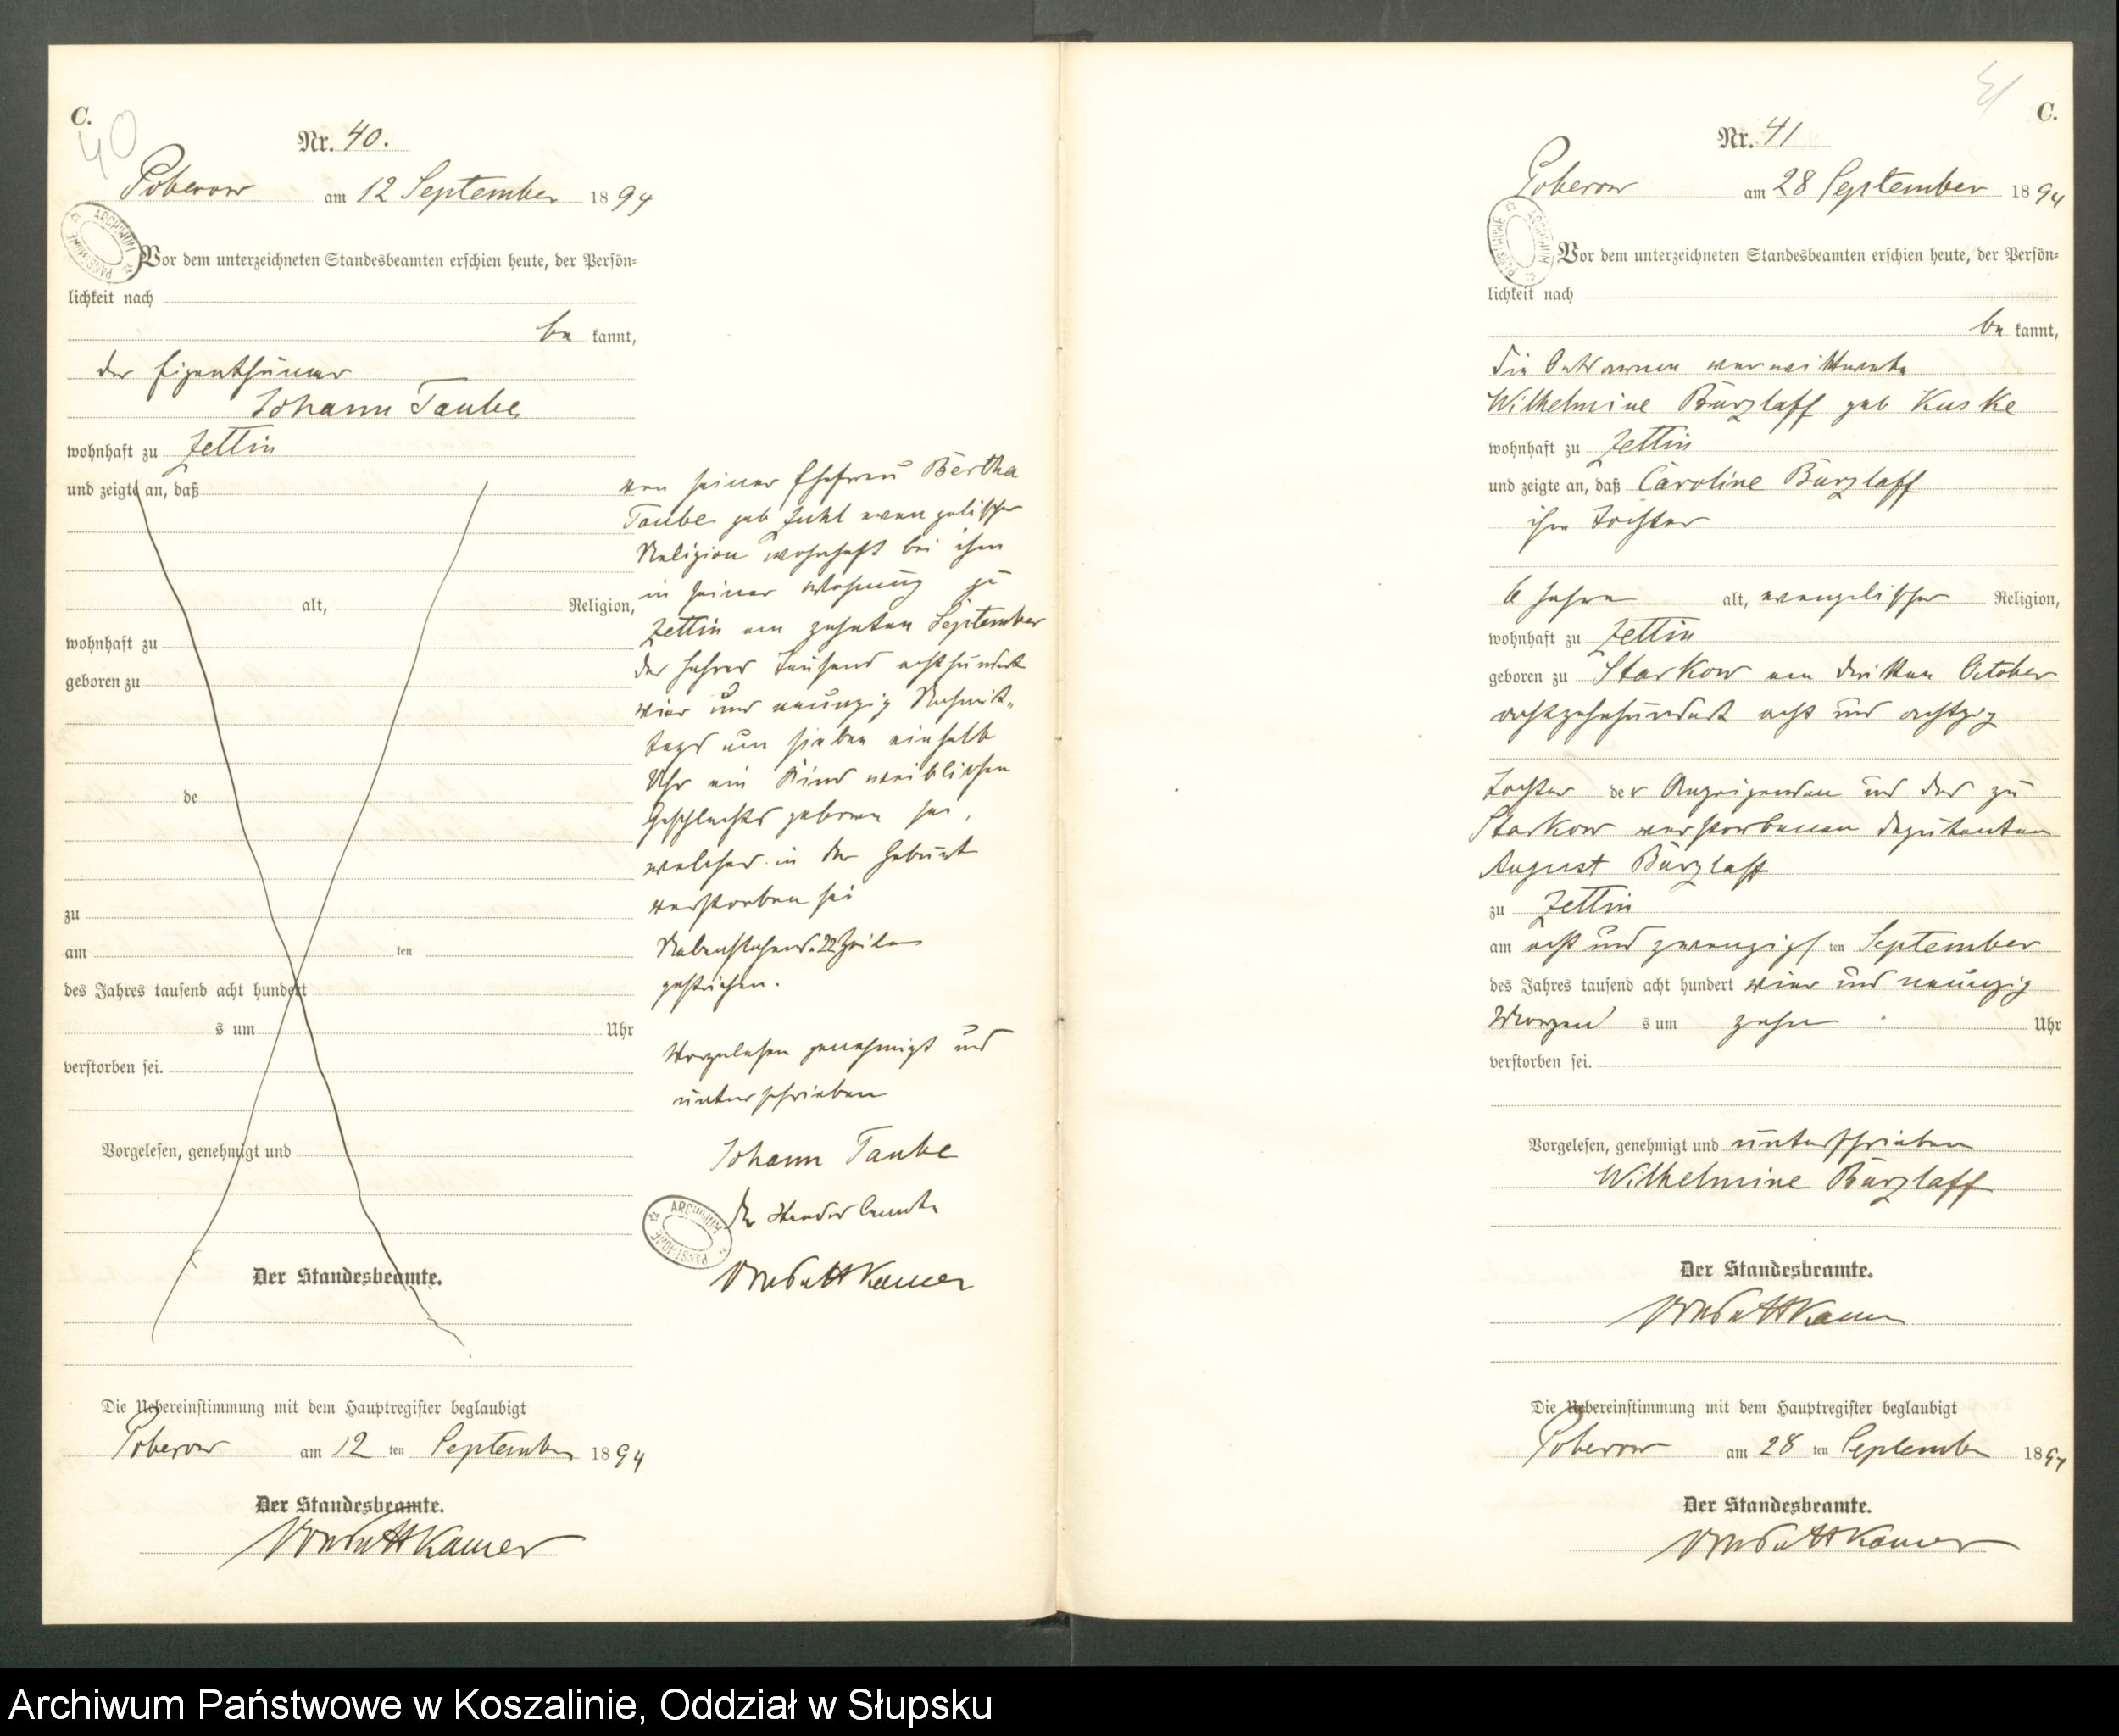 C.
40
Nr. 40.
Poberow am 12 September 1894
Vor dem unterzeichneten Standesbeamten erschien heute, der Persön-
lichkeit nach
be kannt,
der Eigenthümer
Johann Taube
wohnhaft zu Zettin
und zeigte an, daß
alt, Religion,
wohnhaft zu
geboren zu
de
zu
am ten
des Jahres tausend acht hundert
s um Uhr
verstorben sei.
Vorgelesen, genehmigt und
Der Standesbeamte.
von seiner Ehefrau Bertha
Taube geb evangelischer
Religion wohnhaft bei ihm
in seiner Wohnung zu
Zettin am zehnten September
des Jahres tausend achthundert
vier und neunzig Nachmit-
tags um sieben einhalb
Uhr ein Kind weiblichen
Geschlechts geboren sei,
welches in der Geburt
verstorben sei
Nebenstehend 22 Zeilen
gestrichen.
Vorgelesen genehmigt und
unterschrieben
Johann Taube
der Standesbeamte
vonPuttkamer
Die Uebereinstimmung mit dem Hauptregister beglaubigt
Poberow am 12 ten September 1894
Der Standesbeamte.
vonPuttkamer
ARCHIWUM PAŃSTWOWE
ARCHIWUM PAŃSTWOWE
41
C.
Nr. 41
Poberow am 28 September 1894
Vor dem unterzeichneten Standesbeamten erschien heute, der Persön-
lichkeit nach
be kannt,
die verwittwete
Wilhelmine Burzlaff geb Kuske
wohnhaft zu Zettin
und zeigte an, daß Caroline Burzlaff
ihre Tochter
6 Jahre alt, evangelischer Religion,
wohnhaft zu Zettin
geboren zu Starkow am dritten October
achtzehnhundert acht und achtzig
Tochter der Anzeigenden und des zu
Starkow verstorbenen Deputanten
August Burzlaff
zu Zettin
am acht und zwanzigs ten September
des Jahres tausend acht hundert vier und neunzig
Morgen s um zehn Uhr
verstorben sei.
Vorgelesen, genehmigt und unterschrieben
Wilhelmine Burzlaff
Der Standesbeamte.
vonPuttkamer
Die Uebereinstimmung mit dem Hauptregister beglaubigt
Poberow am 28 ten September 1894
Der Standesbeamte.
vonPuttkamer
ARCHIWUM PAŃSTWOWE
Archiwum Państwowe w Koszalinie, Oddział w Słupsku